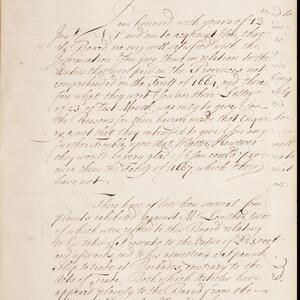 I am honored with yours of 12
Inst N.S. and am to acquaint You that
the Board are very well satisfied with the
Information You give them in relation to the
Duties that were paid in the Provinces
comprehended in the Tariff of 1664, and that
You what they writ You in their Letter
of 23 of last Month, was only to give You
the Reasons for their having made that Enqui-
ry, & not that they intended to give You any
further Trouble upon that Matter, However
they would be very glad if You could pro-
cure them the Tariff of 1667 which they
have not.
There have of late been several Com-
plaints exhibited against Mr Lowther, two
of which were referred to this Board relating
to his taking Presents to the Value of £28000
and upwards, and to his admitting a Spanish
Ship to trade at Barbados, contrary to the
Acts of Trade, Both which Articles have
appeared plainly to the Board from the